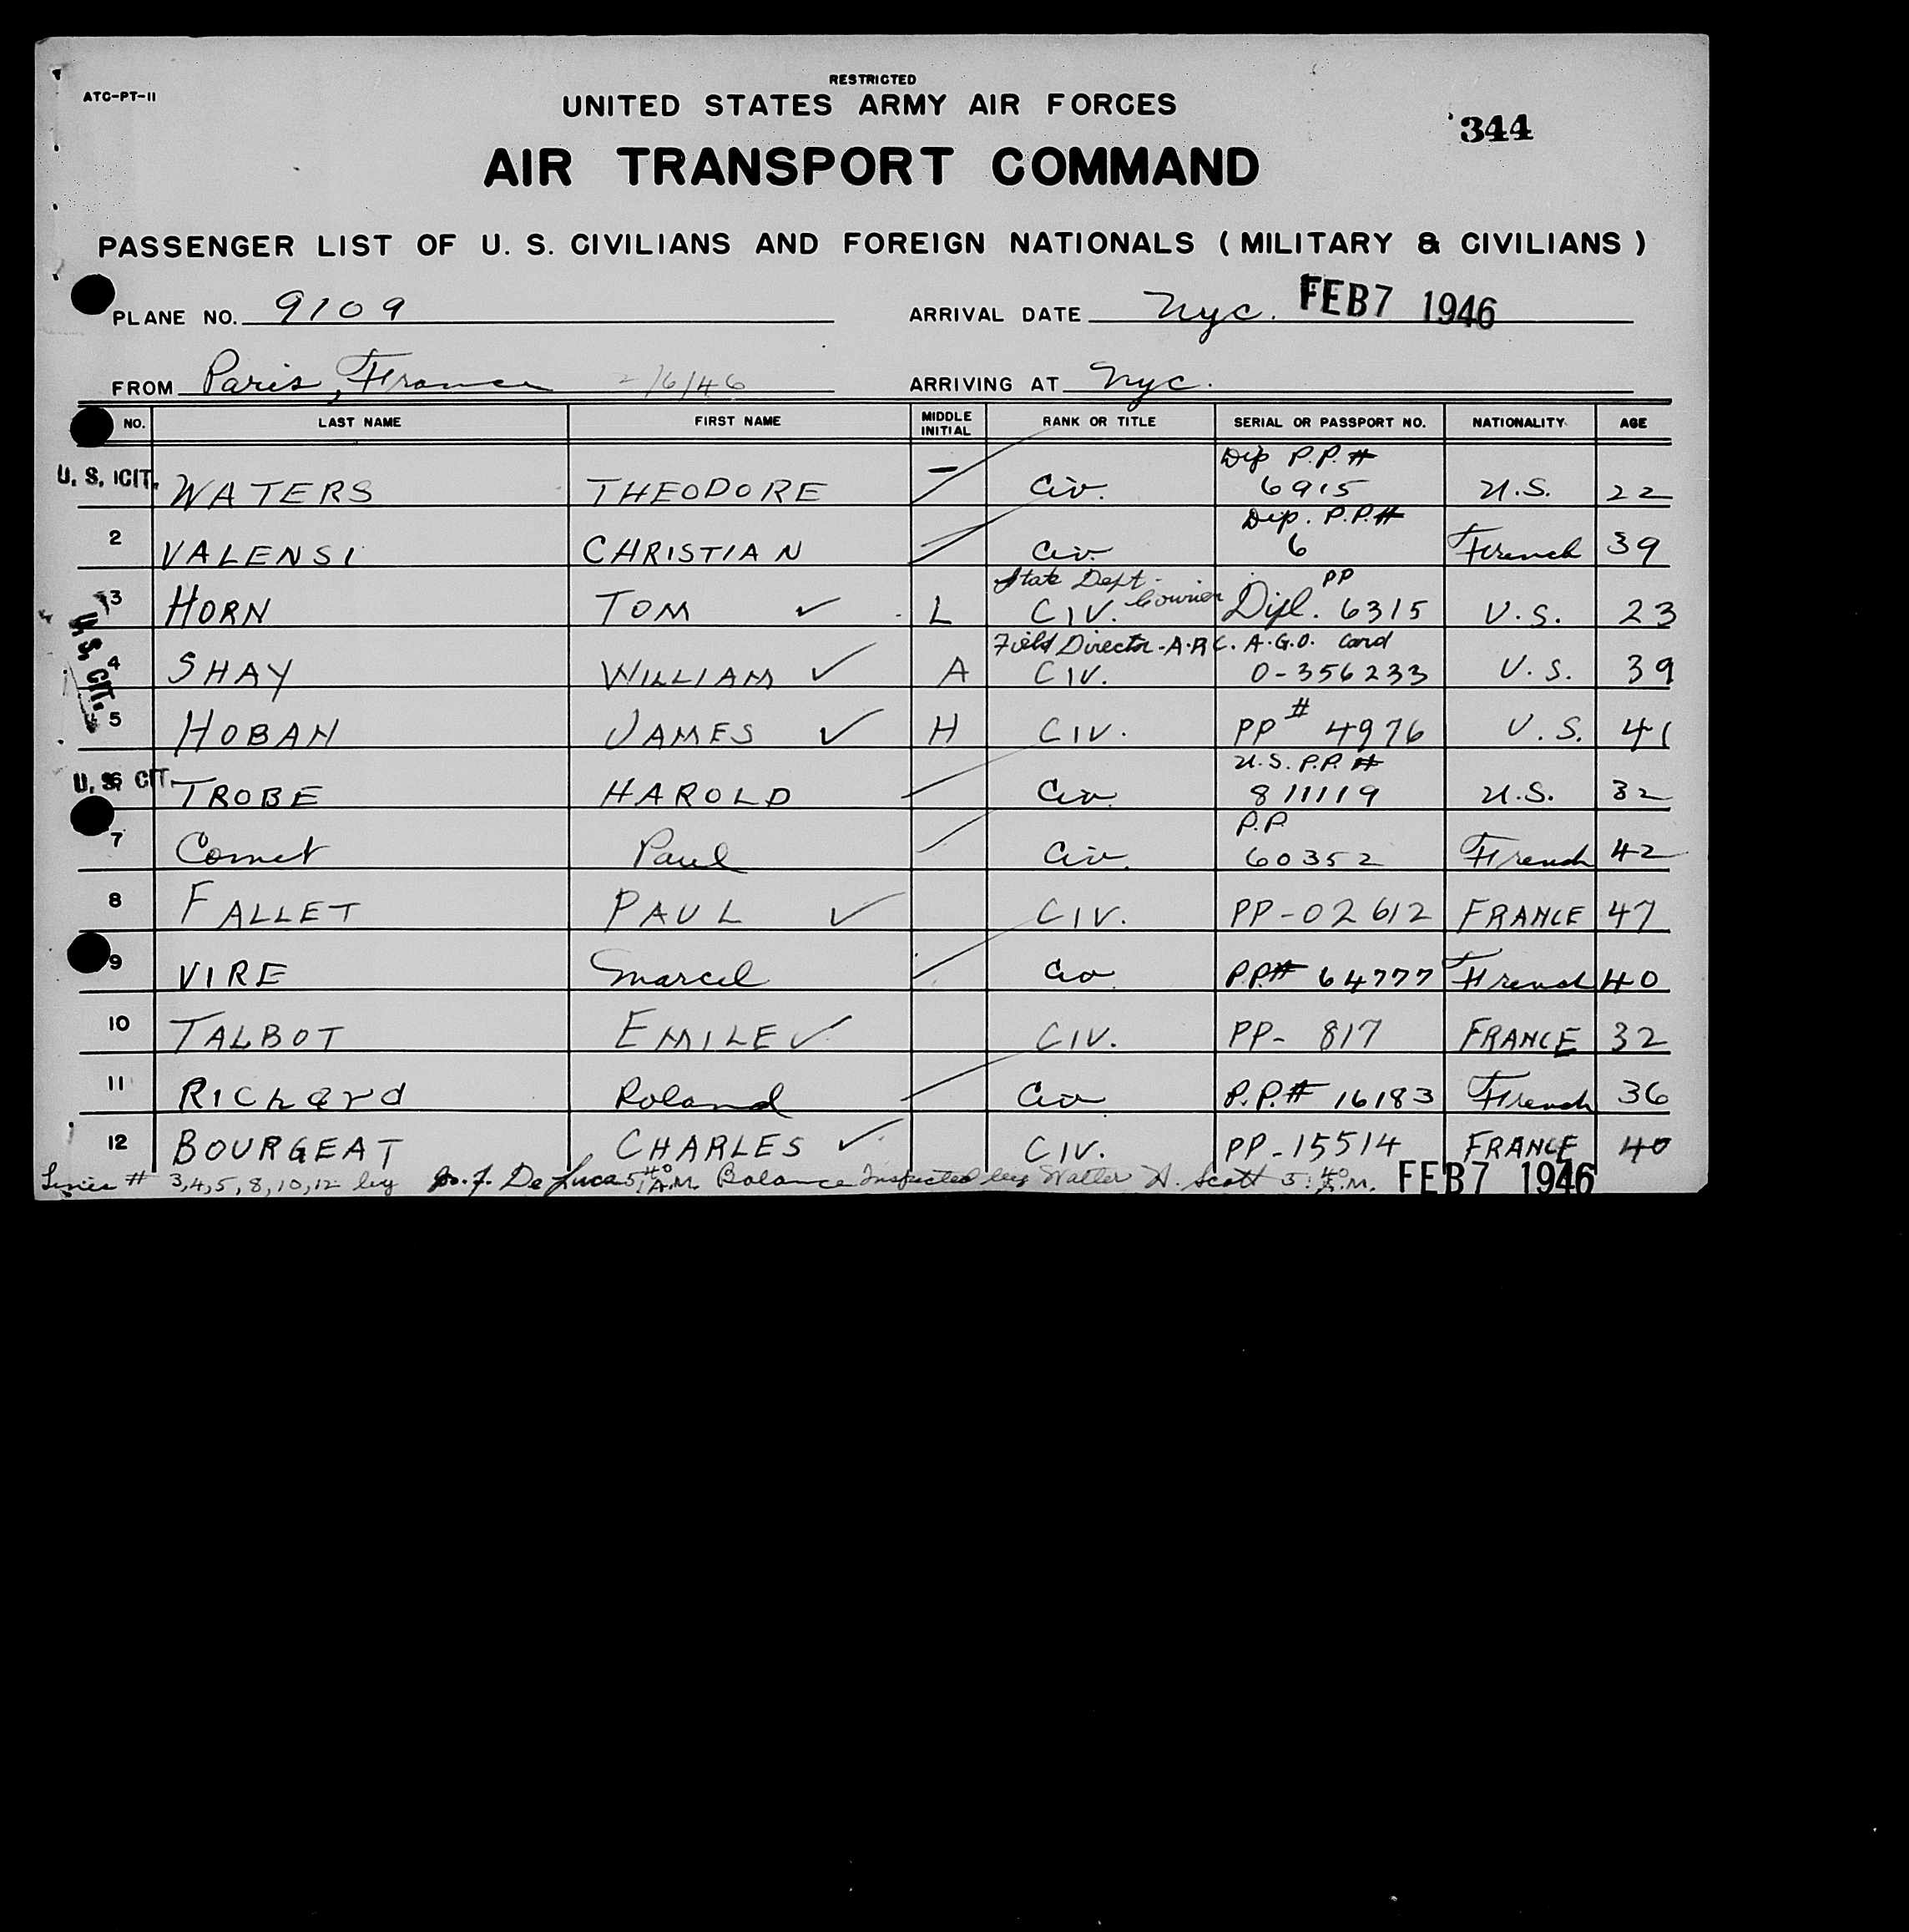 RESTRICTED
ATC-PT-11
UNITED STATES ARMY AIR FORCES
344
AIR TRANSPORT COMMAND
PASSENGER LIST OF U. S. CIVILIANS AND FOREIGN NATIONALS ( MILITARY & CIVILIANS )
PLANE NO. 9109 ARRIVAL DATE Nyc. FEB 7 1946
FROM Paris, France 2/6/46 ARRIVING AT Nyc.
NO. LAST NAME FIRST NAME MIDDLE INITIAL RANK OR TITLE SERIAL OR PASSPORT NO. NATIONALITY AGE
Dip P.P. #
U. S. CIT. WATERS THEODORE – Civ. 6915 U.S. 22
Dip. P.P. #
2 VALENSI CHRISTIAN Civ. 6 French 39
State Dept. Courier PP
3 HORN TOM ✓ L CIV. Dipl. 6315 U.S. 23
Field Director - A.R.C. A.G.O. Card
U. S. CIT.
4 SHAY WILLIAM ✓ A CIV. O-356233 U.S. 39
5 HOBAN JAMES ✓ H CIV. PP # 4976 U.S. 41
U.S. P.P. #
U. S. CIT. 6 TROBE HAROLD Civ. 811119 U.S. 32
P.P.
7 Comet Paul Civ. 60352 French 42
8 FALLET PAUL ✓ CIV. PP-02612 FRANCE 47
9 VIRE Marcel Civ P.P.# 64777 French 40
10 TALBOT EMILE ✓ CIV. PP- 817 FRANCE 32
11 Richard Roland Civ P.P.# 16183 French 36
12 BOURGEAT CHARLES ✓ CIV. PP-15514 FRANCE 40
Lines # 3,4,5,8,10,12 by J. De Luca 5:40 A.M. Balance Inspected by Walter H. Scott 5:40 A.M. FEB 7 1946